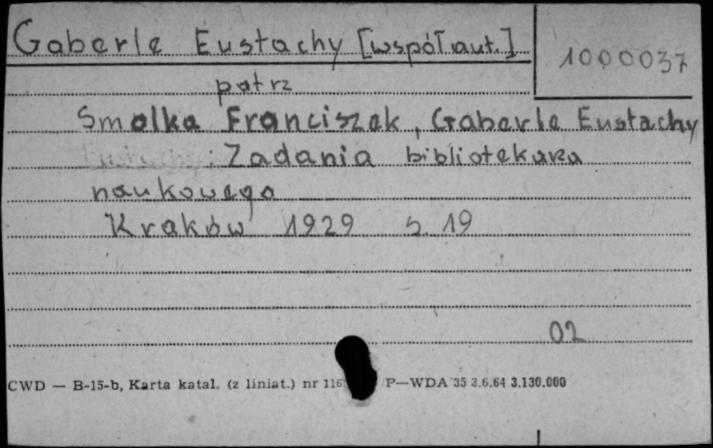 Gaberle Eustachy [współaut.]
1000037
patrz
Smolka Franciszek, Gaberle Eustachy
: Zadania bibliotekarza
naukowego
Kraków 1929 s. 19
02
CWD — B-15-b, Karta katal. (z liniat.) nr 116 P—WDA 35 3.6.64 3.130.000